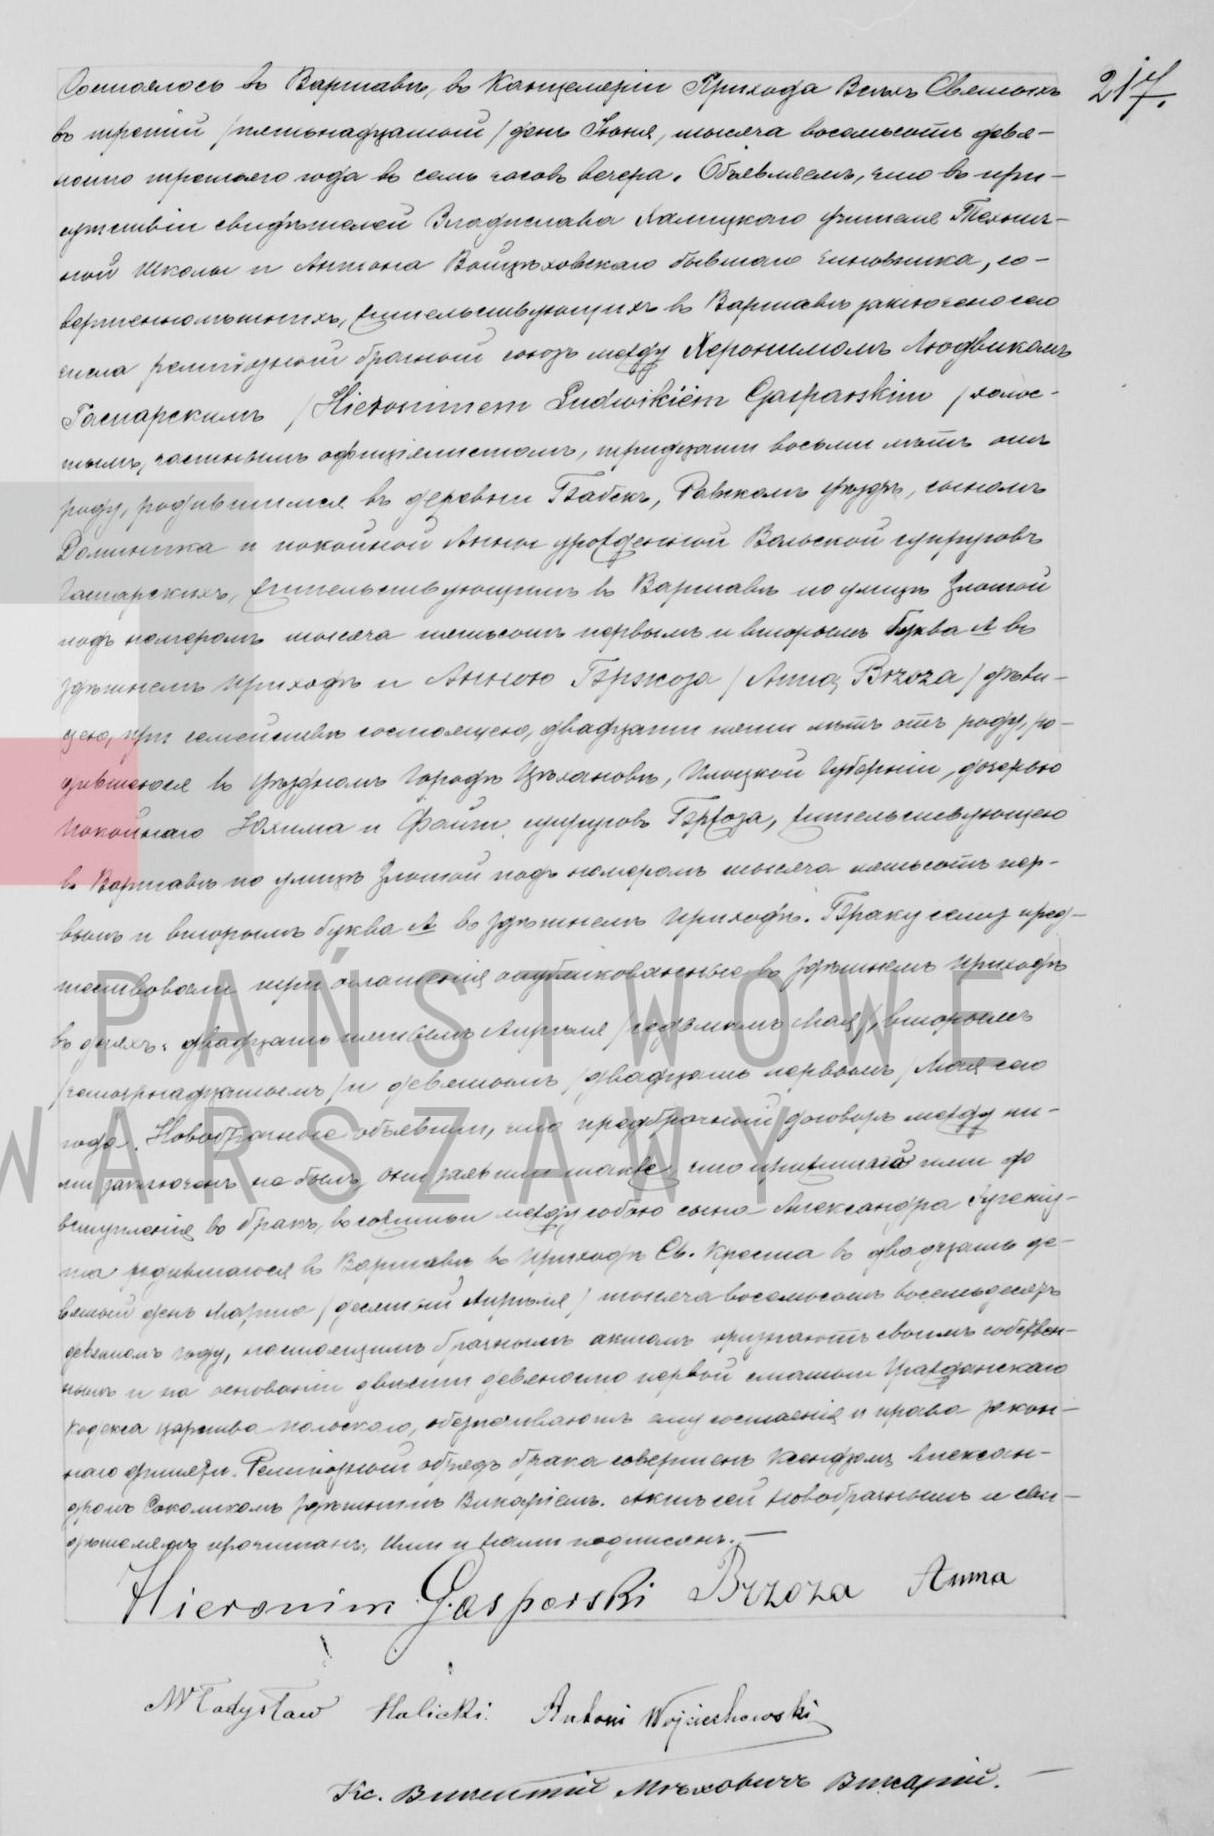 217.
Состоялось въ Варшавѣ, въ Канцеляріи Прихода Всѣхъ Святыхъ
въ третій /пятьнадцатый/ день Іюня, тысяча восемьсотъ девя-
носто третьяго года въ семь часовъ вечера. Объявляемъ, что въ при-
сутствіи свидѣтелей Владислава Халицкаго учителя Технич-
ной Школы и Антона Войцѣховскаго бывшаго чиновника, со-
вершеннолѣтнихъ, жительствующихъ въ Варшавѣ заключено сего
числа религіозный брачный союзъ между Херонимомъ Людвикомъ
Гаспарскимъ /Hieronimem Ludwikiem Gasparskim/ холос-
тымъ, частнымъ оффиціялистомъ, тридцати восьми лѣтъ отъ
роду, родившимся въ деревни Бабскъ, Равскомъ уѣздѣ, сыномъ
Доминика и покойной Анны урожденной Вольской супруговъ
Гаспарскихъ, жительствующимъ въ Варшавѣ по улицѣ Злотой
подъ номеромъ тысяча пятьсотъ первымъ и вторымъ буква А въ
здѣшнемъ приходѣ и Анною Бржоза /Anną Brzoza/ дѣви-
цею, при семействѣ состоящею, двадцати пяти лѣтъ отъ роду, ро-
дившеюся въ уѣздномъ городѣ Цѣхановѣ, Плоцкой Губерніи, дочерью
покойнаго Юхима и Файги супруговъ Бржоза, жительствующею
въ Варшавѣ по улицѣ Злотой подъ номеромъ тысяча пятьсотъ пер-
вымъ и вторымъ буква А въ здѣшнемъ приходѣ. Браку сему пред-
шествовали три оглашенія опубликованныя въ здѣшнемъ приходѣ
въ дняхъ: двадцать пятымъ Апрѣля /седьмомъ Мая/, вторымъ
/четырнадцатымъ/ и девятымъ /двадцать первымъ/ Мая сего
года. Новобрачные объявили, что предбрачный договоръ между ни-
ми заключенъ не былъ, они заявили также, что прижитаго ими до
вступленія въ бракъ, въ сожитіи между собою сына Александра Евгені-
ша родившагося въ Варшавѣ въ приходѣ Св. Креста въ двадцать де-
вятый день Марта /десятый Апрѣля/ тысяча восемьсотъ восемьдесятъ
девятомъ году, настоящимъ брачнымъ актомъ признаютъ своимъ собствен-
нымъ и на основаніи двѣсти девяносто первой статьи Гражданскаго
Кодекса царства польскаго, обезпечиваютъ ему состоянія и права закон-
наго дитяти. Религіозный обрядъ брака совершенъ Ксендзомъ Алексан-
дромъ Соколикомъ здѣшнимъ Викаріемъ. Актъ сей новобрачнымъ и сви-
дѣтелямъ прочитанъ, Ими и Нами подписанъ.—
Hieronim Gasparski Brzoza Anna
Władysław Halicki. Antoni Wojciechowski
Кс. Викентій Мѣховичъ Викарій.
PAŃSTWOWE
WARSZAWY